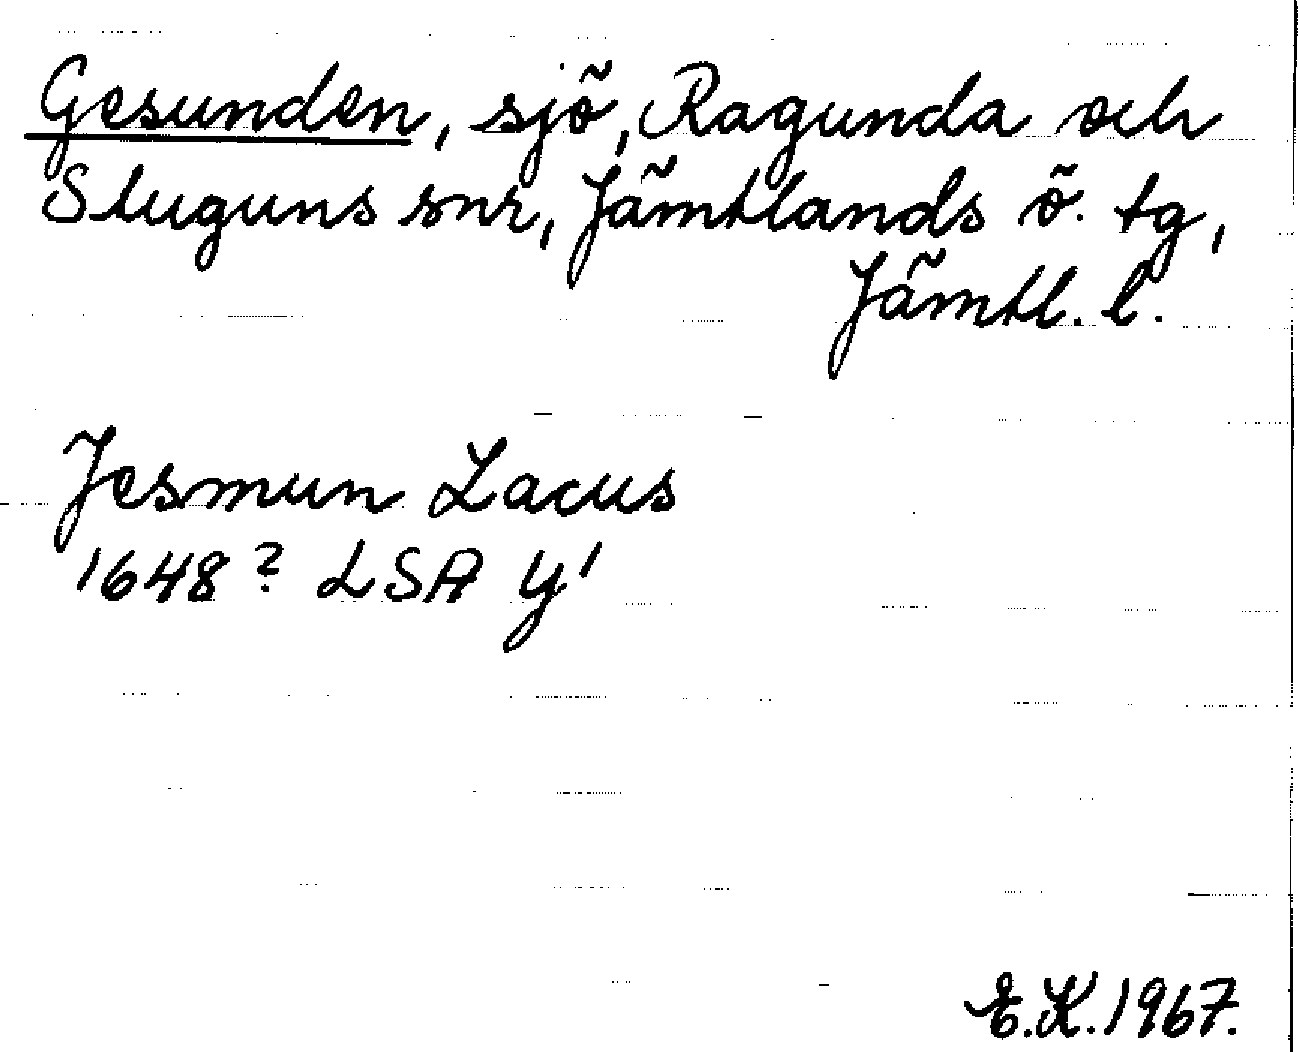 Gesunden, sjö, Ragunda och
Stuguns snr, Jämtlands ö. tg,
Jämtl. l.
Jesmun Lacus
1648? LSA Y1
E.K. 1967.